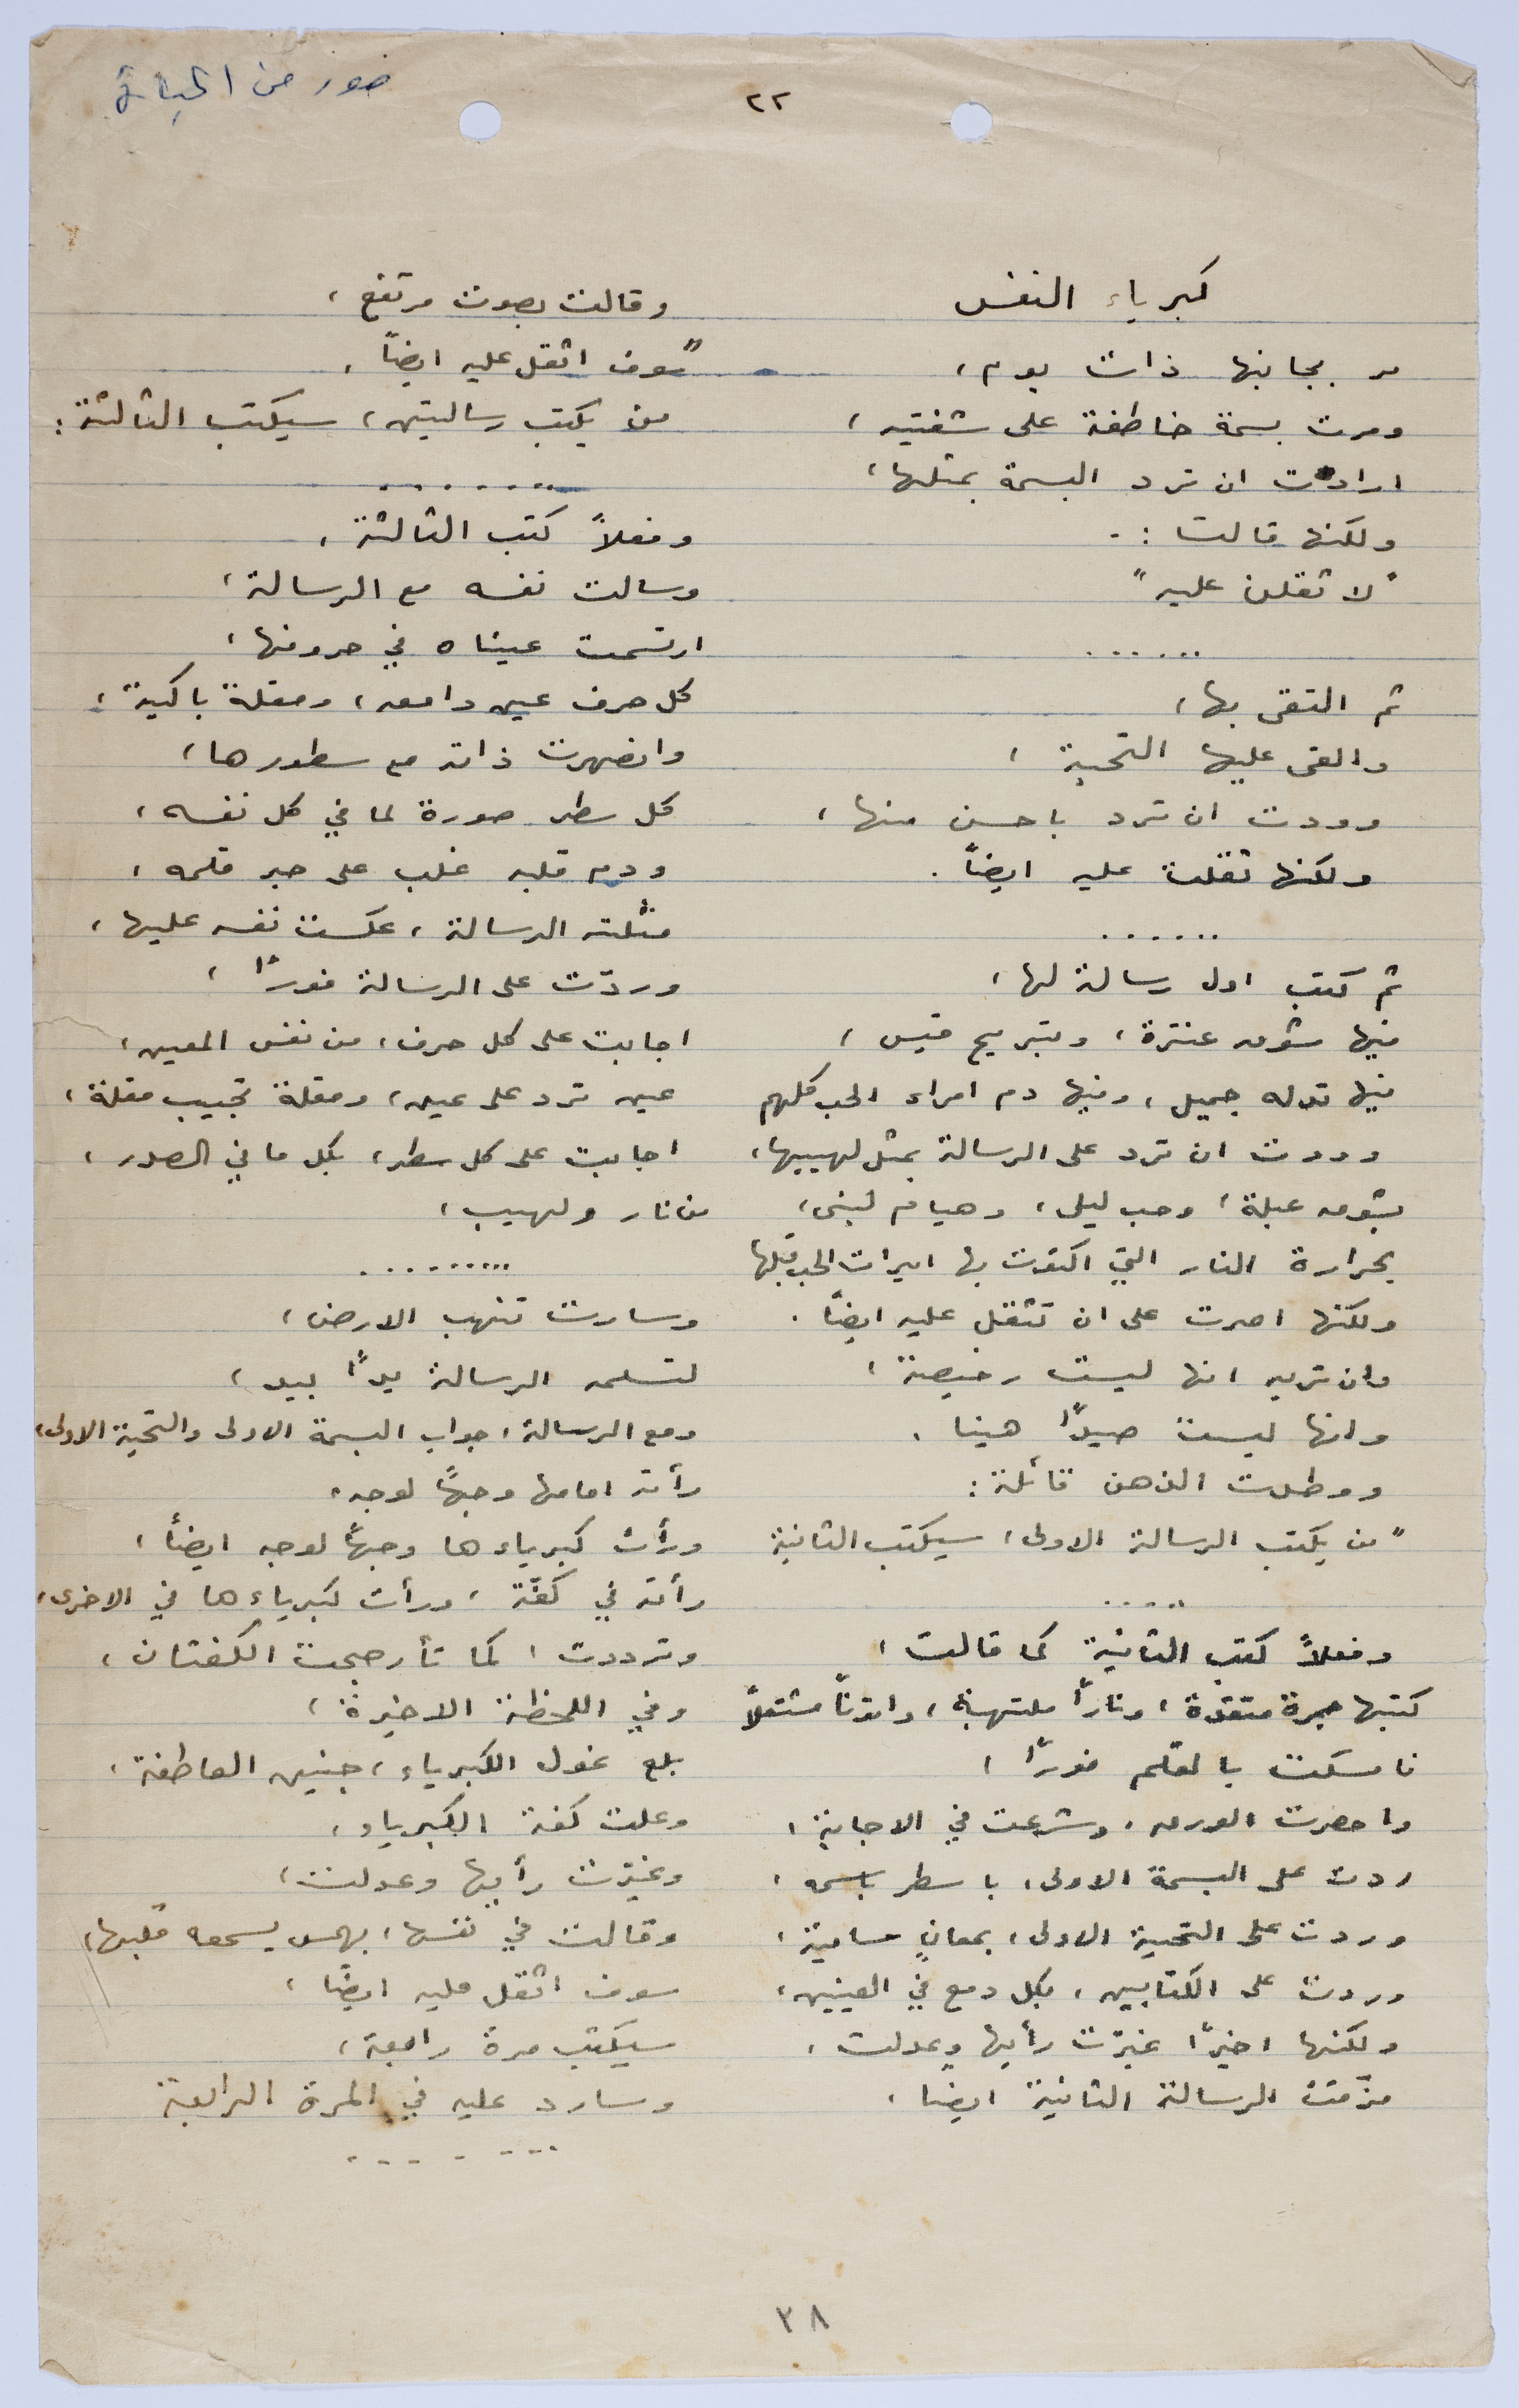 صور من الحياة
٢٢
كبرياء النفس
مر بجانبها ذات يوم،
ومرت بسمة خاطفة على شفتيه،
ارادت ان ترد البسمة بمثلها،
ولكنها قالت :-
"لا ثقلن عليه"
......
ثم التقى بها،
والقى عليها التحية ،
وودت ان ترد باحسن منها،
ولكنها ثقلت عليه ايضاً.
......
ثم كتب اول رسالة لها،
فيها شوق عنترة، وتبريح قيس،
فيها تدله جميل، وفيها دم امراء الحب كلهم
وودت ان ترد على الرسالة بمثل لهيبها،
بشوق عبلة، وحب ليلى، وهيام لبنى،
بحرارة النار التي اكتوت بها اميرات الحب قبلها
ولكنها اصرت على ان تثقل عليه ايضاً.
وان تريه انها ليست رخيصة،
وانها ليست صيداً هينا.
ووطدت الذهن قائلة:
"من يكتب الرسالة الاولى، سيكتب الثانية
.....
وفعلاً كتب الثانية كما قالت،
كتبها جمرة متقدة، وناراً ملتهبة، واتوناً مشتعلاً
فامسكت بالقلم فوراً،
واحضرت الورق، وشرعت في الاجابة،
ردت على البسمة الاولى، باسطر باسمه،
وردت على التحية الاولى، بمعانٍ سامية،
وردت على الكتابين، بكل دمع في العينين،
ولكنها اخيراً غيّرت رأيها وعدلت،
مزّقت الرسالة الثانية ايضا،
وقالت بصوت مرتفع،
"سوف اثقل عليه ايضاً،
من يكتب رسالتين، سيكتب الثالثة:
........
وفعلاً كتب الثالثة،
وسالت نفسه مع الرسالة،
ارتسمت عيناه في حروفها،
كل حرف عين دامعه، ومقلة باكية،
وانصهرت ذاته مع سطورها،
كل سطر صورة لما في كل نفسه،
ودم قلبه غلب على حبر قلمه،
مثلته الرسالة، عكست نفسه عليها،
وردّت على الرسالة فوراً،
اجابت على كل حرف، من نفس المعين،
عين ترد على عين، ومقلة تجيب مقلة،
اجابت على كل سطر، بكل ما في الصدر،
من نار ولهيب،
.........
وسارت تنهب الارض،
لتسلمه الرسالة يداً بيد،
ومع الرسالة، جواب البسمة الاولى والتحية الاولى،
رأته امامها وجهاً لوجه،
ورأت كبرياءها وجهاً لوجه ايضاً،
رأته في كفّة، ورأت كبرياءها في الاخرى،
وترددت، كما تأرجحت الكفتان،
وفي اللحظة الاخيرة،
بلع غول الكبرياء، جنين العاطفة،
وعلت كفة الكبرياء،
وغيّرت رأيها وعدلت،
وقالت في نفسها، بهمس يسمعه قلبها،
سوف اثقل عليه ايضًا،
سيكتب مرة رابعة،
وسارد عليه في المرة الرابعة
........
٣٨